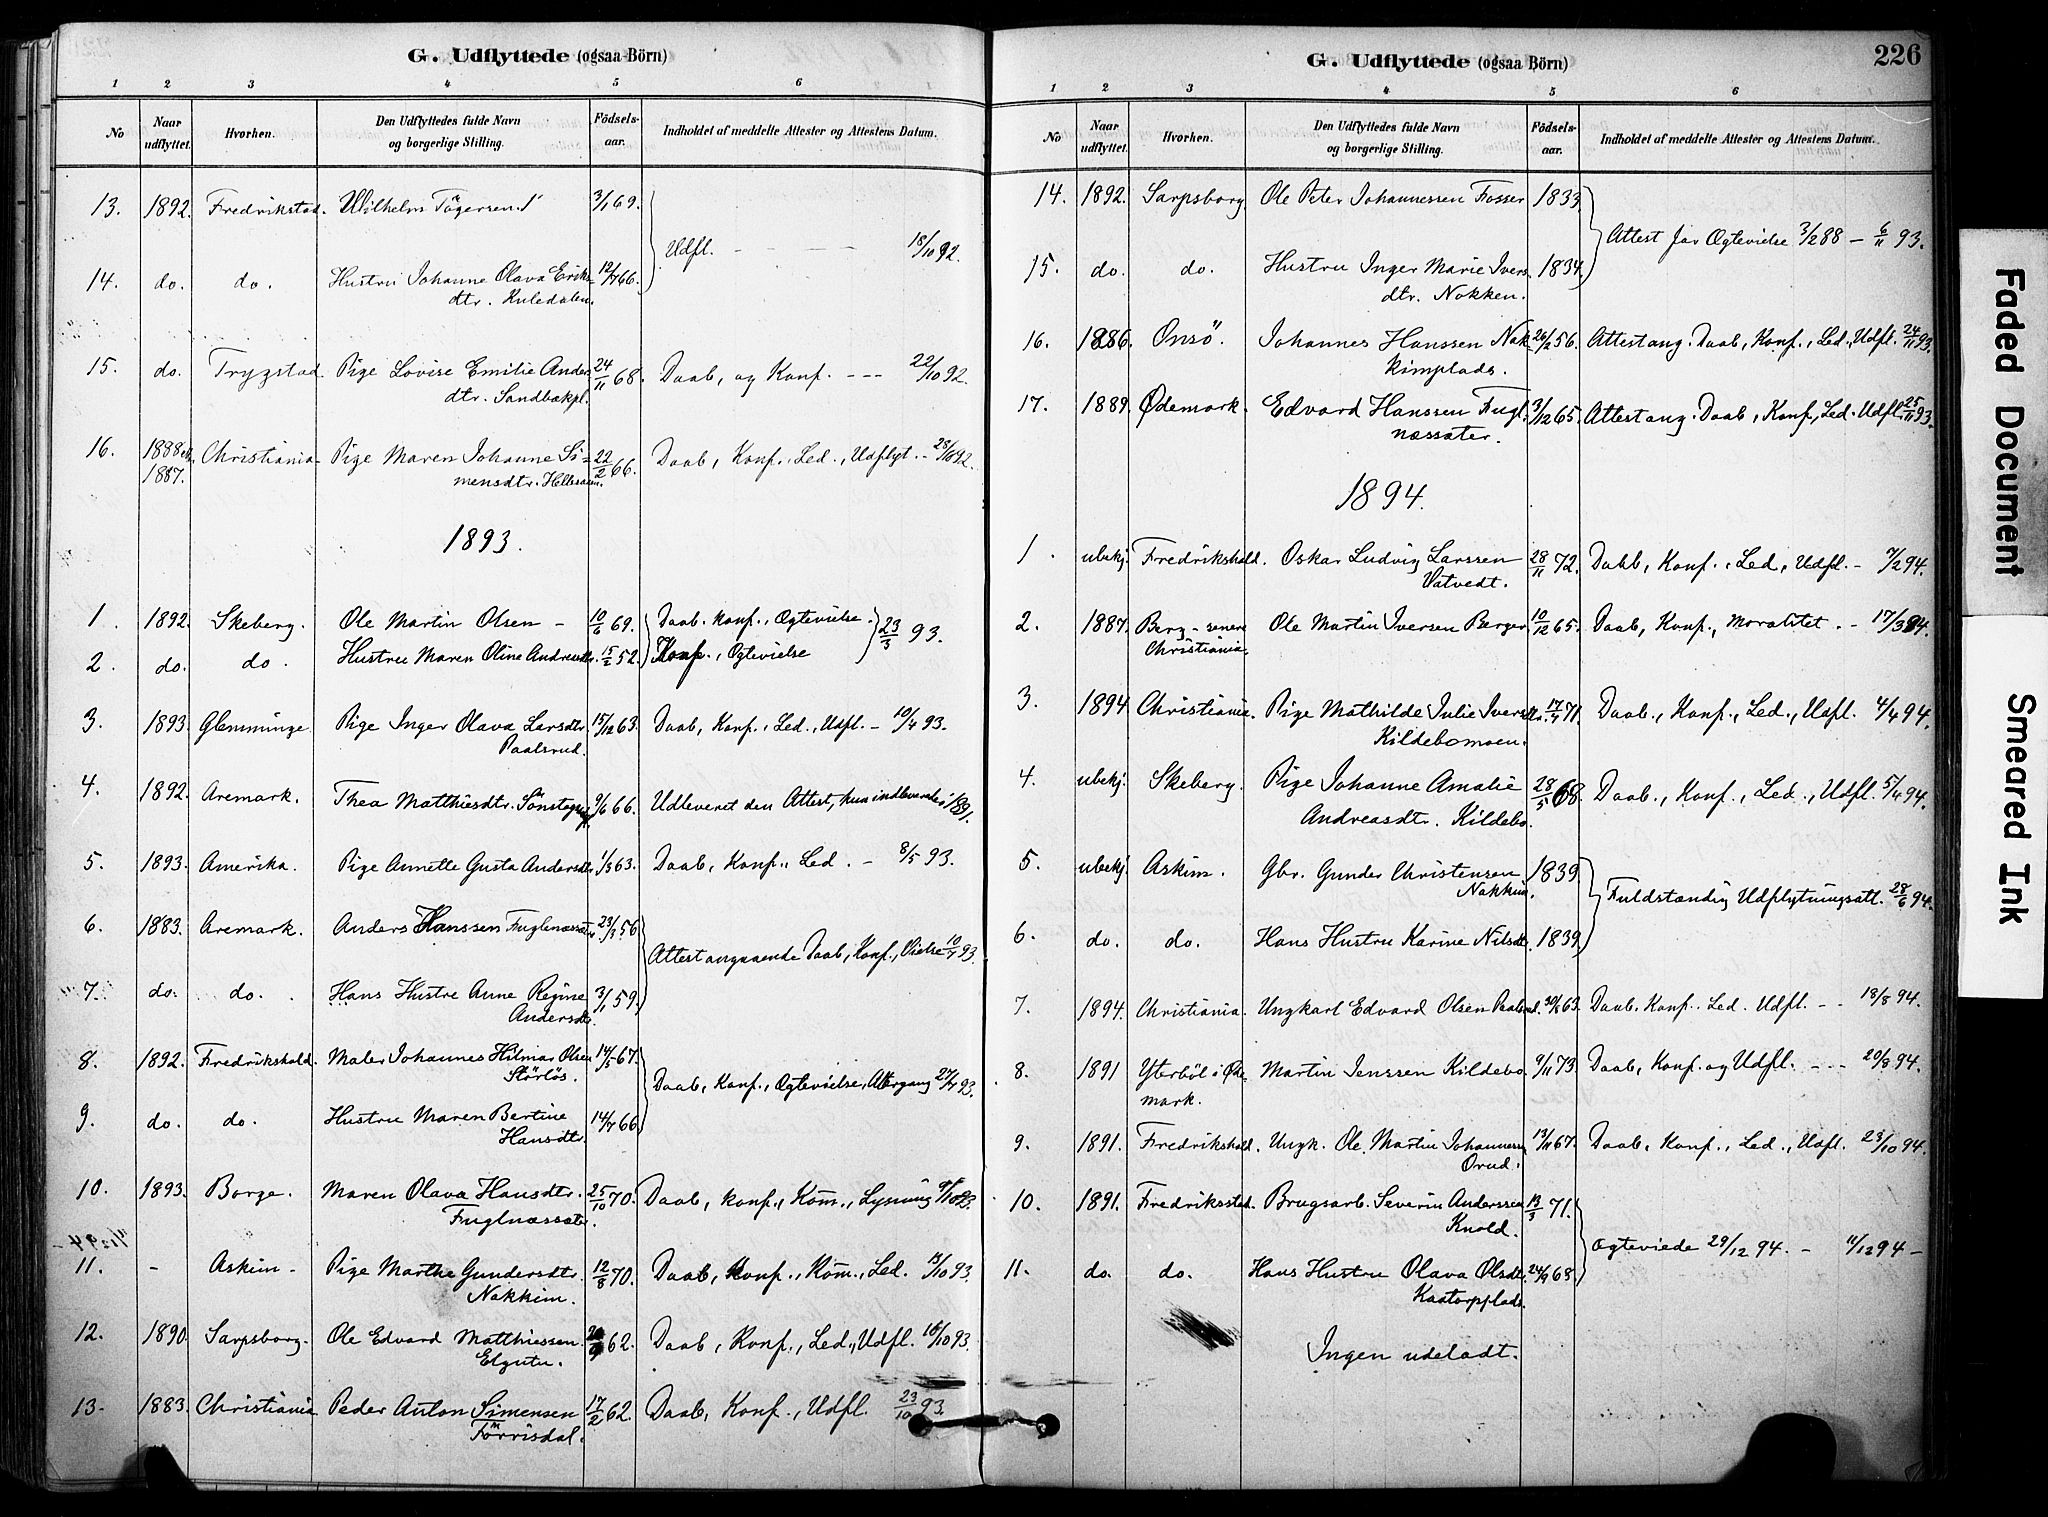 G. Udflyttede (ogsaa Börn)
1 2 3 4 5 6
No
Naar udflyttet.
Hvorhen.
Den Udflyttedes fulde Navn og borgerlige Stilling.
Födsels-aar.
Indholdet af meddelte Attester og Attestens Datum.
13. 1892. Fredrikstad. Wilhelm Tögersen 3/1 69.
Udfl. - - - - 18/10 92.
14. do. do. Hustru Johanne Olava Eriks- 12/7 66.
dtr. Ruledalen.
15. do. Trygstad. Pige Lovise Emilie Anders 24/11 68. Daab, og Konf. - - - 22/10 92.
dtr. Sandbækpl.
16. 1888 1887. Christiania Pige Maren Johanne Si- 22/2 66. Daab, Konf., Led., Udflyt. - 28/10 92.
mensdtr.
1893.
1. 1892. Skeberg. Ole Martin Olsen - 10/6 69. Daab. konf., Ogtevielse.
23/3 93.
2. do. do. Hustru Maren Oline Andreasdtr. 15/2 52. Konf., Ogtevielse
3. 1893. Glemminge Pige Inger Olava Larsdtr. 15/12 63. Daab, Konf., Led., Udfl. - 10/4 93.
Paalsrud.
4. 1892. Aremark. Thea Matthiesdtr. 9/6 66. Udleveret den Attest, hun indleverede i 1891.
5. 1893. Amerika. Pige Annette Gusta Andersdtr. 1/3 63. Daab, Konf., Led. - 8/5 93.
6. 1883. Aremark. Anders Hanssen Fuglenæssætr. 23/3 56
Attest angaaende Daab, Konf., Vielse 10/7 93.
7. do. do. Hans Hustru Anne Regine 3/1 59.
Andersdtr.
8. 1892. Fredrikshald. Maler Johannes Hilmar Olsen 14/5 67.
Störlös.
Daab, Konf., Ogtevielse, Altergang 27/7 93.
9. do. do. Hustru Maren Bertine 14/7 66.
Hansdtr.
10. 1893. Borge. Maren Olava Hansdtr. 25/10 70. Daab, konf., Kom., Lysning 9/10 93.
Fuglnæssætr.
11. - Askim - Pige Marthe Gundersdtr. 12/8 70. Daab, Konf., Kom., Led. 13/10 93.
Nakkim.
12. 1890. Sarpsborg. Ole Edvard Matthiessen 62. Daab, Konf., Led., Udfl. 16/10 93.
Elgetu.
13. 1883. Christiania Peder Anton Simensen 17/2 62. Daab, Konf., Udfl. 23/10 93.
Förrisdal.
G. Udflyttede (ogsaa Börn)
226
1 2 3 4 5 6
No
Naar udflyttet.
Hvorhen.
Den Udflyttedes fulde Navn og borgerlige Stilling.
Födsels-aar.
Indholdet af meddelte Attester og Attestens Datum.
14. 1892. Sarpsborg. Ole Peter Johannessen Fosser 1833.
Attest for Ogtevielse 3/2 88 - 6/11 93.
15. do. do. Hustru Inger Marie Ivers- 1834.
dtr. Nokken.
16. 1886. Onsö. Johannes Hanssen Nak- 26/2 56. Attest ang. Daab, Konf., Led., Udfl. 24/11 93.
kimplads.
17. 1889. Ødemark. Edvard Hanssen Fugl- 3/12 65. Attest ang. Daab, Konf., Led. Udfl. 25/11 93.
næssæter.
1894.
1. ubekj. Fredrikshald. Oskar Ludvig Larssen 28/11 72. Daab, Konf., Led, Udfl. - 7/2 94.
Vatvedt.
2. 1887. Berg - senere Ole Martin Iversen Berger 10/12 65. Daab, Konf., Moralitet. - 17/3 94.
Christiania.
3. 1894 Christiania. Pige Mathilde Julie Iversdtr. 17/4 71. Daab., Konf., Led., Udfl. 4/4 94.
Kildebomoen.
4. ubekj. Skeberg. Pige Johanne Amalie 28/5 68. Daab., Konf., Led., Udfl. 5/4 94.
Andreasdtr. Kildebo.
5. ubekj. Askim. Gbr. Gunder Christensen 1839.
Nakkim.
Fuldstændig Udflytningsatt. 28/6 94.
6. do. do. Hans Hustru Karine Nilsdtr. 1839.
7. 1894. Christiania. Ungkarl Edvard Olsen Paalsrud. 63. Daab, Konf. Led. Udfl. - - 18/8 94.
8. 1891 Ytterböl i Øde- Martin Jenssen Kildebo. 9/11 73. Daab, Konf. og Udfl. - - - 20/8 94.
mark.
9. 1891. Fredrikshald. Ungk. Ole Martin Johannessen 13/11 67. Daab, Konf., Led., Udfl. 23/10 94.
Orud.
10. 1891. Fredriksstad. Brugsarb. Severin Anderssen 13/3 71.
Knold.
Ogteviede 29/12 94. - 11/12 94 -
11. do. do. Hans Hustru Olava Olsdtr. 24/9 68.
Kaatorpplads.
Ingen udeladt.
Faded Document
Smeared Ink